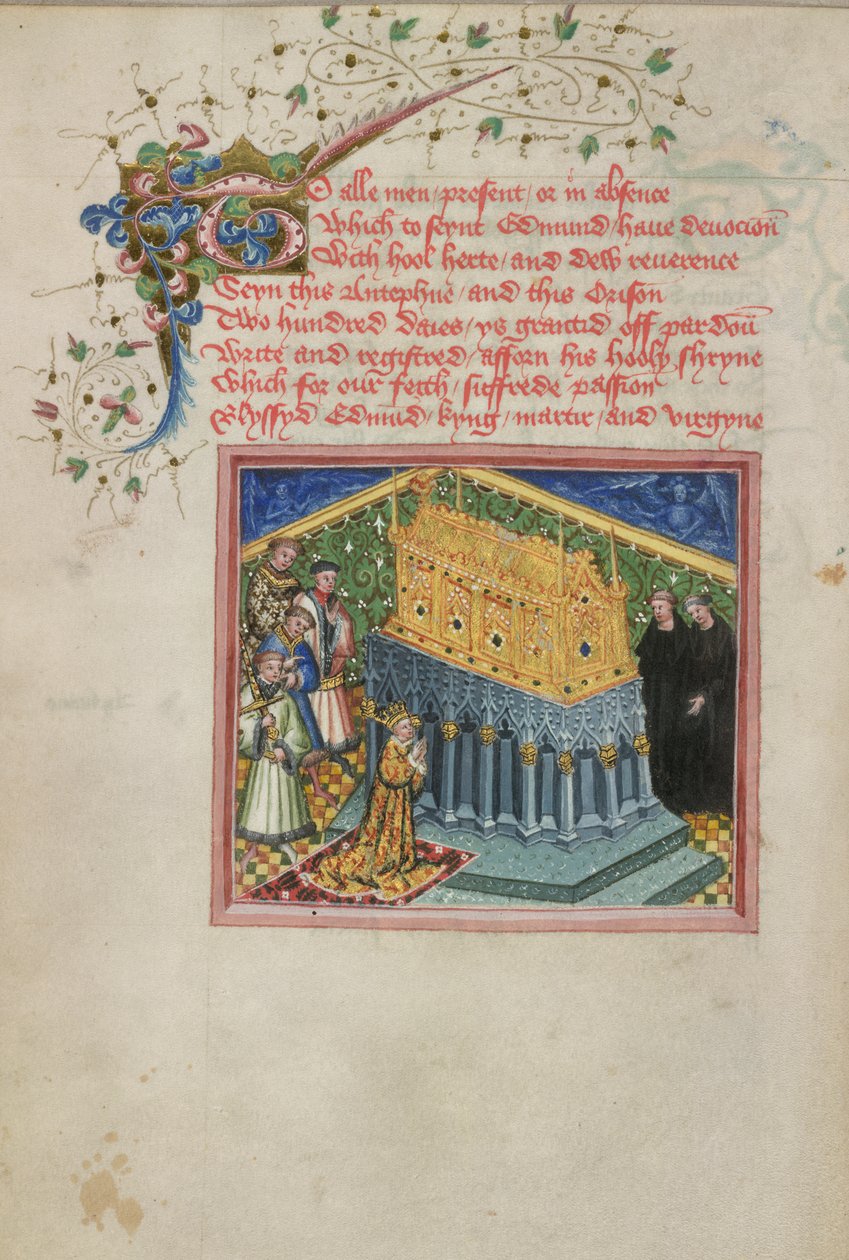 To alle men / present / or in absence
Which to seynt Edmund / haue deuocioũ
With hool herte / and dew reuerence
Seyn this Antephne / and this Orison
Two hundred daies / ys grantid off pardoũ
Write and registred / afforn his hooly shryne
Which for our feith / suffrede passion
Blyssyd Edmund / kyng / martir / and virgyne